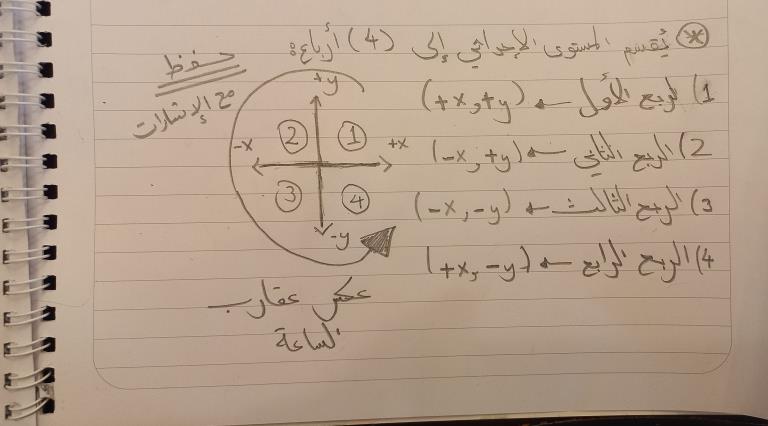 * يُقسم المستوى الإحداثي إلى (4) أرباع:
1) الربع الأول ← (+x, +y)
2) الربع الثاني ← (-x, +y)
3) الربع الثالث ← (-x, -y)
4) الربع الرابع ← (+x, -y)
حفظ
مع الإشارات
+y
2 1
-x +x
3 4
-y
عكس عقارب
الساعة